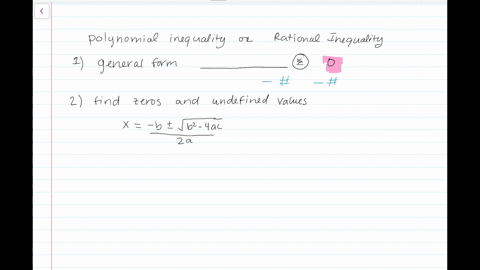 polynomial inequality or Rational Inequality
1) general form ________ ≥ 0
- # - #
2) find zeros and undefined values
x = -b ± √b² - 4ac
2a